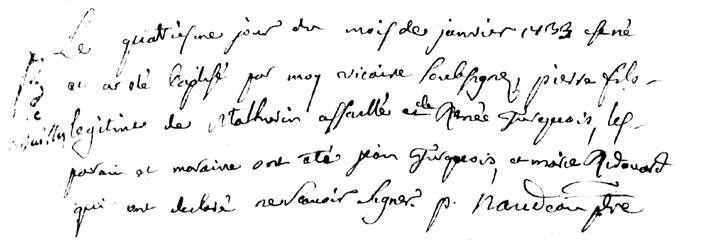 Le quatriesme jour du mois de janvier 1733 est né
et a esté baptisé par moy vicaire soubsigné, pierre fils
legitime de Mathurin assaillé et de Renée Turquois, les
parain et maraine ont été jean Turquois, et marie Ridouard
qui ont declaré ne scavoir signer. p. Naudeau ptre